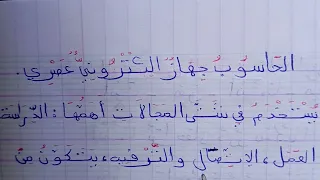 الحَاسُوبُ جِهَازٌ الِكْتْرُونِيٌّ عَصْرِي.
يُسْتَخْدَمُ فِي شَتَّى المَجَالَاتِ أَهَمُّهَا: الدِّرَاسَة
العَمَل، الاِتِّصَال والتَّرْفِيه، يَتَكَوَّنُ مِنْ